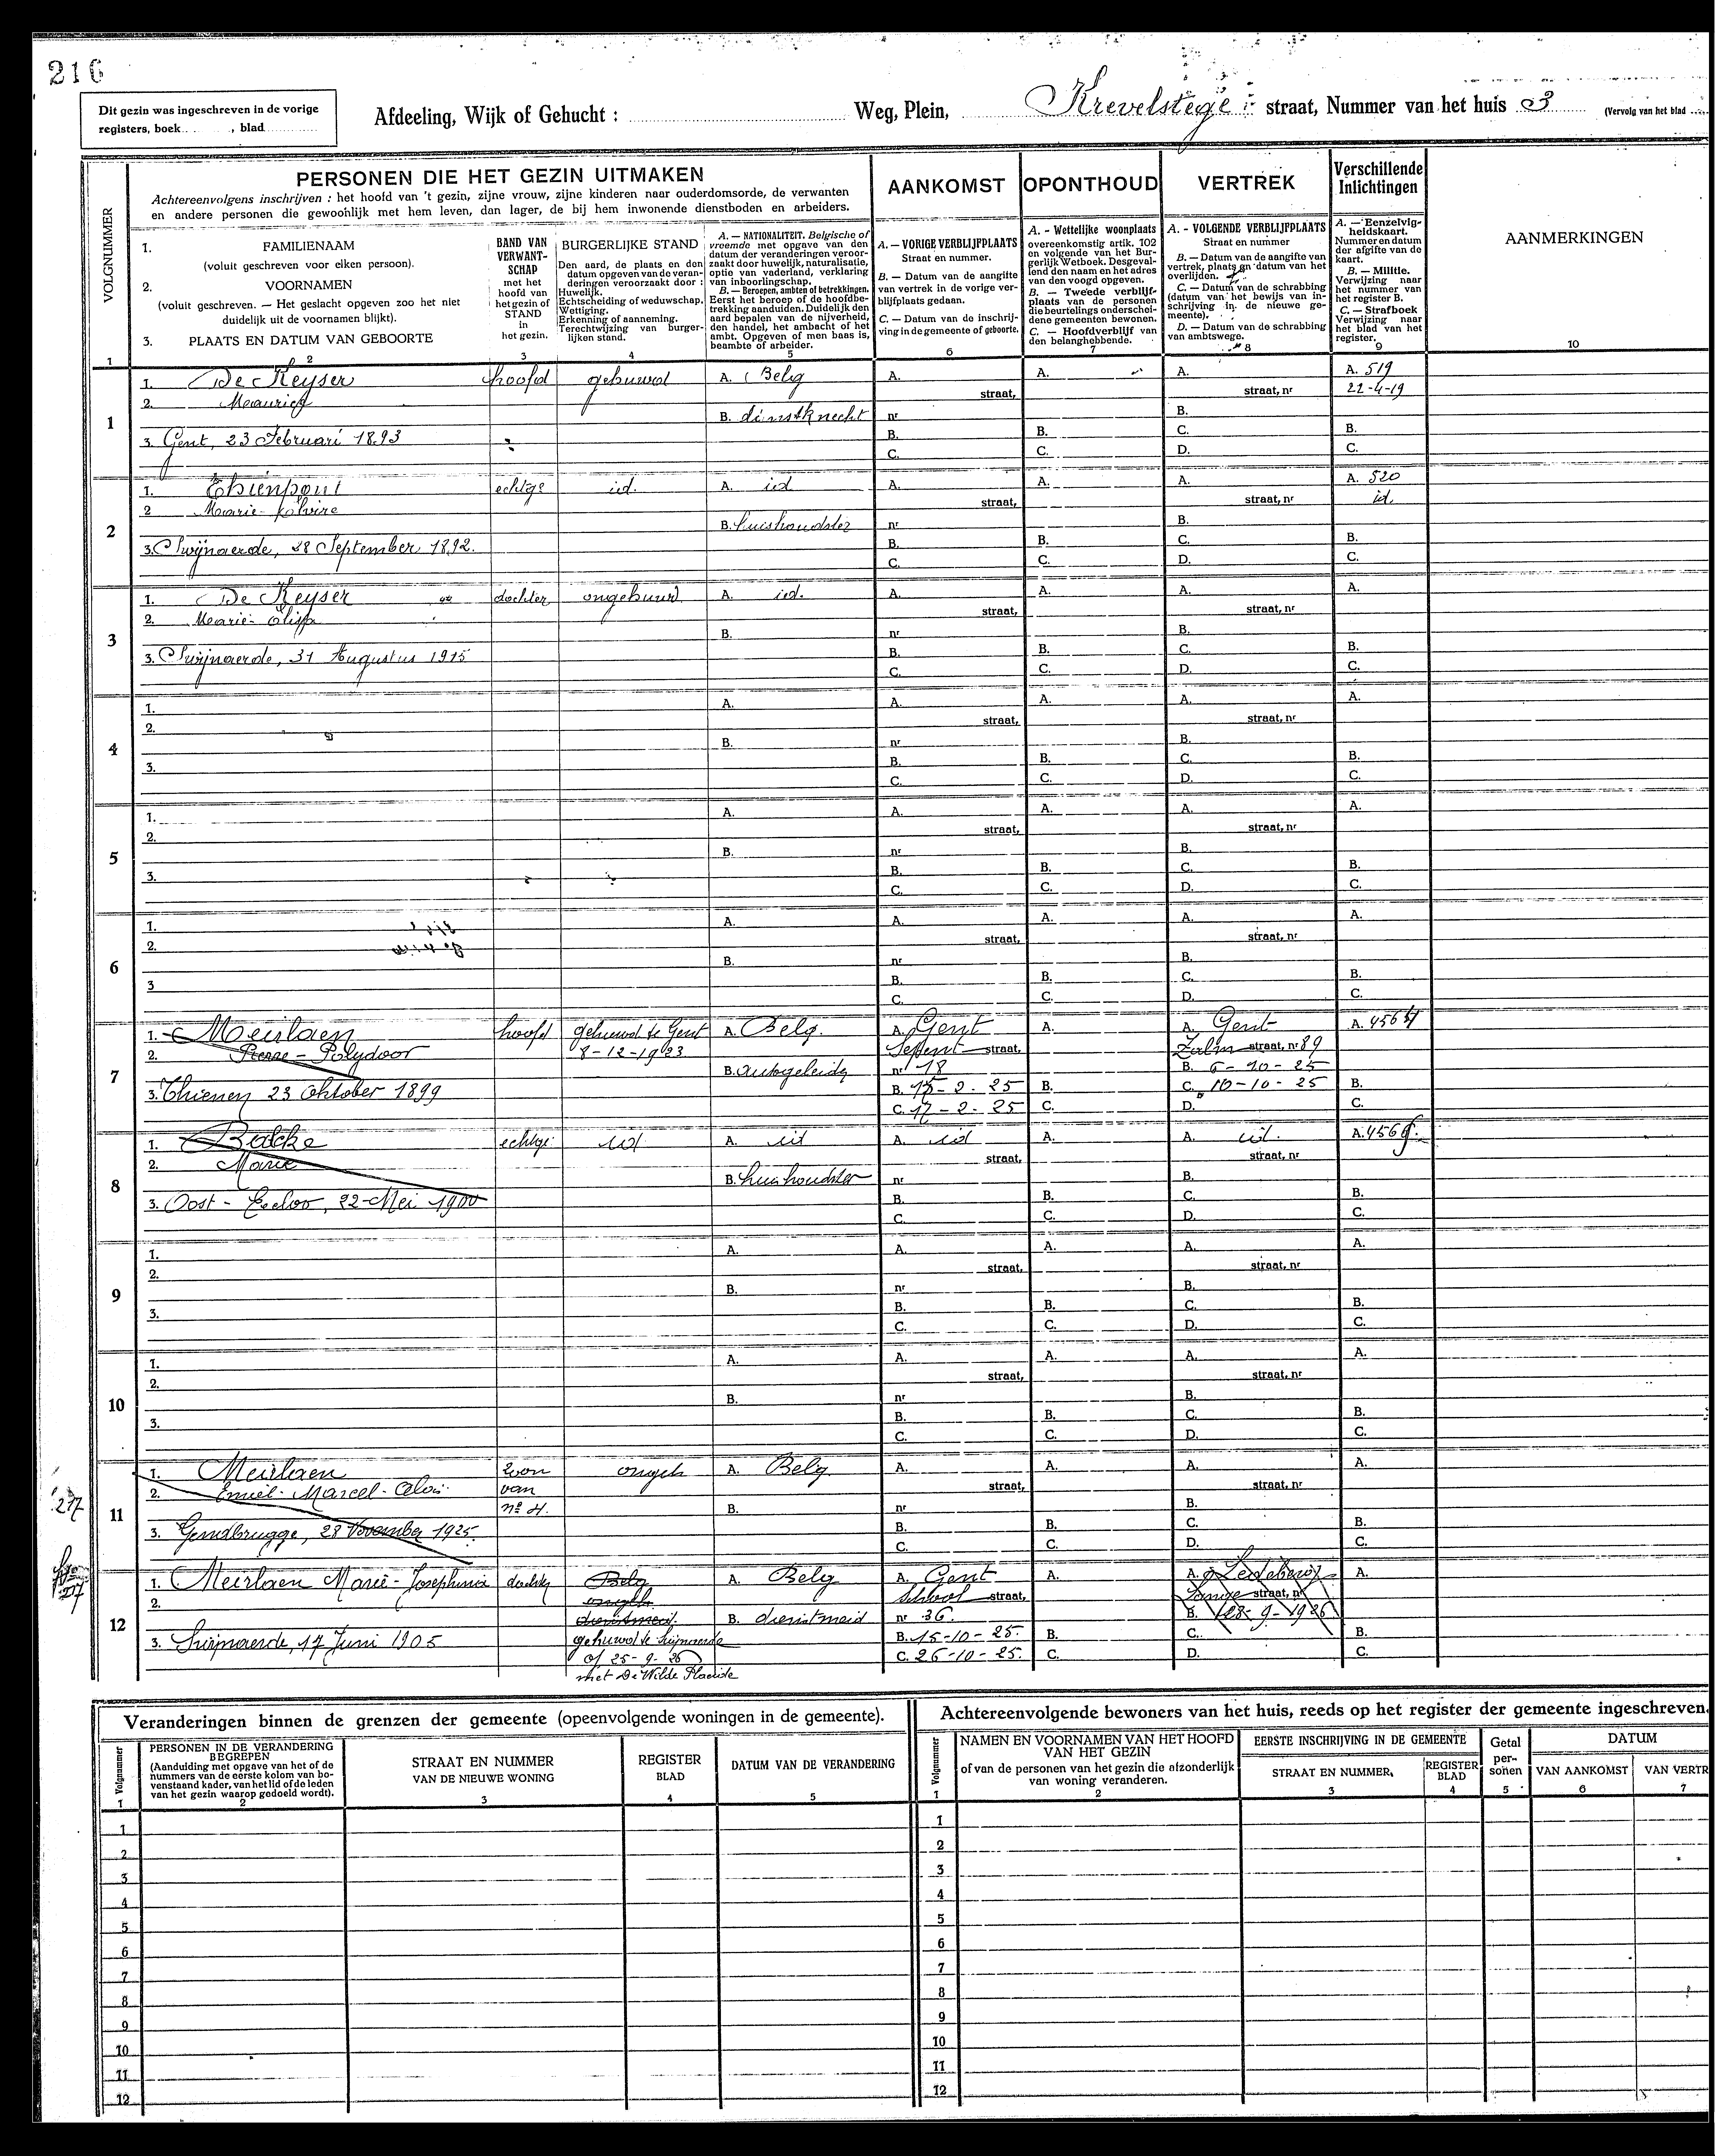 216
Dit gezin was ingeschreven in de vorige
registers, boek , blad
Afdeeling, Wijk of Gehucht : Weg, Plein, Krevelstege straat, Nummer van het huis 3 (Vervolg van het blad
VOLGNUMMER
PERSONEN DIE HET GEZIN UITMAKEN
Achtereenvolgens inschrijven : het hoofd van 't gezin, zijne vrouw, zijne kinderen naar ouderdomsorde, de verwanten
en andere personen die gewoonlijk met hem leven, dan lager, de bij hem inwonende dienstboden en arbeiders.
1. FAMILIENAAM
(voluit geschreven voor elken persoon).
2. VOORNAMEN
(voluit geschreven. — Het geslacht opgeven zoo het niet
duidelijk uit de voornamen blijkt).
3. PLAATS EN DATUM VAN GEBOORTE
BAND VAN
VERWANT-
SCHAP
met het
hoofd van
het gezin of
STAND
in
het gezin.
BURGERLIJKE STAND
Den aard, de plaats en den
datum opgeven van de veran-
deringen veroorzaakt door :
Huwelijk.
Echtscheiding of weduwschap.
Wettiging.
Erkenning of aanneming.
Terechtwijzing van burger-
lijken stand.
A. — NATIONALITEIT. Belgische of
vreemde met opgave van den
datum der veranderingen veroor-
zaakt door huwelijk, naturalisatie,
optie van vaderland, verklaring
van inboorlingschap.
B. — Beroepen, ambten of betrekkingen.
Eerst het beroep of de hoofdbe-
trekking aanduiden. Duidelijk den
aard bepalen van de nijverheid,
den handel, het ambacht of het
ambt. Opgeven of men baas is,
beambte of arbeider.
AANKOMST
A. — VORIGE VERBLIJFPLAATS
Straat en nummer.
B. — Datum van de aangifte
van vertrek in de vorige ver-
blijfplaats gedaan.
C. — Datum van de inschrij-
ving in de gemeente of geboorte.
OPONTHOUD
A. - Wettelijke woonplaats
overeenkomstig artik. 102
en volgende van het Bur-
gerlijk Wetboek. Desgeval-
lend den naam en het adres
van den voogd opgeven.
B. — Tweede verblijf-
plaats van de personen
die beurtelings onderschei-
dene gemeenten bewonen.
C. — Hoofdverblijf van
den belanghebbende.
VERTREK
A. - VOLGENDE VERBLIJFPLAATS
Straat en nummer
B. — Datum van de aangifte van
vertrek, plaats en datum van het
overlijden.
C. — Datum van de schrabbing
(datum van het bewijs van in-
schrijving in de nieuwe ge-
meente).
D. — Datum van de schrabbing
van ambtswege.
Verschillende
Inlichtingen
A. — Eenzelvig-
heidskaart.
Nummer en datum
der afgifte van de
kaart.
B. — Militie.
Verwijzing naar
het nummer van
het register B.
C. — Strafboek
Verwijzing naar
het blad van het
register.
AANMERKINGEN
1 2 3 4 5 6 7 8 9 10
1
1. De Keyser hoofd gehuwd A. Belg A. A. A. A. 519
2. Maurice straat, straat, nr 22-4-19
B. dienstknecht nr B.
3. Gent, 23 Februari 1893 B. B. C. B.
C. C. D. C.
2
1. Thienpont echtge id. A. id A. A. A. A. 520
2 Marie straat, straat, nr id.
B. huishoudster nr B.
3. Swijnaerde, 28 September 1892. B. B. C. B.
C. C. D. C.
3
1. De Keyser dochter ongehuwd A. id. A. A. A. A.
2. Marie- Elisa straat, straat, nr
B. nr B.
3. Swijnaerde, 31 Augustus 1915 B. B. C. B.
C. C. D. C.
4
1. A. A. A. A. A.
2. straat, straat, nr
B. nr B.
3. B. B. C. B.
C. C. D. C.
5
1. A. A. A. A. A.
2. straat, straat, nr
B. nr B.
3. B. B. C. B.
C. C. D. C.
6
1. A. A. A. A. A.
2. straat, straat, nr
B. nr B.
3 B. B. C. B.
C. C. D. C.
7
1. Meirlaen hoofd gehuwd te Gent A. Belg. A. Gent A. A. Gent A.
2. Pierre - Polydoor 8-12-1923 straat, Zalm straat, nr 89
B. autogeleider nr 18 B. 6-10-25
3. Thienen 23 Oktober 1899 B. 15-2-25 B. C. 10-10-25 B.
C. 17-2-25 C. D. C.
8
1. Backe echtge: id A. id A. id A. A. id. A.
2. Marie straat, straat, nr
B. huishoudster nr B.
3. Oost-Eecloo, 22-Mei 1900 B. B. C. B.
C. C. D. C.
9
1. A. A. A. A. A.
2. straat, straat, nr
B. nr B.
3. B. B. C. B.
C. C. D. C.
10
1. A. A. A. A. A.
2. straat, straat, nr
B. nr B.
3. B. B. C. B.
C. C. D. C.
217
11
1. Meirlaen zoon ongeh A. Belg A. A. A. A.
2. Emiel- Marcel- Alois van straat, straat, nr
nº 4. B. nr B.
3. Gendbrugge, 28 November 1925 B. B. C. B.
C. C. D. C.
12
1. Meirlaen Marie-Josephina dochter Belg A. Belg A. Gent A. A. Ledeberg A.
2. ongeh School straat, straat, nr
dienstmeid B. dienstmeid nr 36. B. 28-9-1926
3. Swijnaerde, 17 Juni 1905 gehuwd te Swijnaerde B. 15-10-25. B. C. B.
of 25-9-26 C. 26-10-25. C. D. C.
met De Wilde Placide
Veranderingen binnen de grenzen der gemeente (opeenvolgende woningen in de gemeente).
Volgnummer
PERSONEN IN DE VERANDERING
BEGREPEN
(Aanduiding met opgave van het of de
nummers van de eerste kolom van bo-
venstaand kader, van het lid of de leden
van het gezin waarop gedoeld wordt).
STRAAT EN NUMMER
VAN DE NIEUWE WONING
REGISTER
BLAD
DATUM VAN DE VERANDERING
1 2 3 4 5
1
2
3
4
5
6
7
8
9
10
11
12
Achtereenvolgende bewoners van het huis, reeds op het register der gemeente ingeschreven.
Volgnummer
NAMEN EN VOORNAMEN VAN HET HOOFD
VAN HET GEZIN
of van de personen van het gezin die afzonderlijk
van woning veranderen.
EERSTE INSCHRIJVING IN DE GEMEENTE
STRAAT EN NUMMER,
REGISTER
BLAD
Getal
per-
sonen
DATUM
VAN AANKOMST
VAN VERTR
1 2 3 4 5 6 7
1
2
3
4
5
6
7
8
9
10
11
12